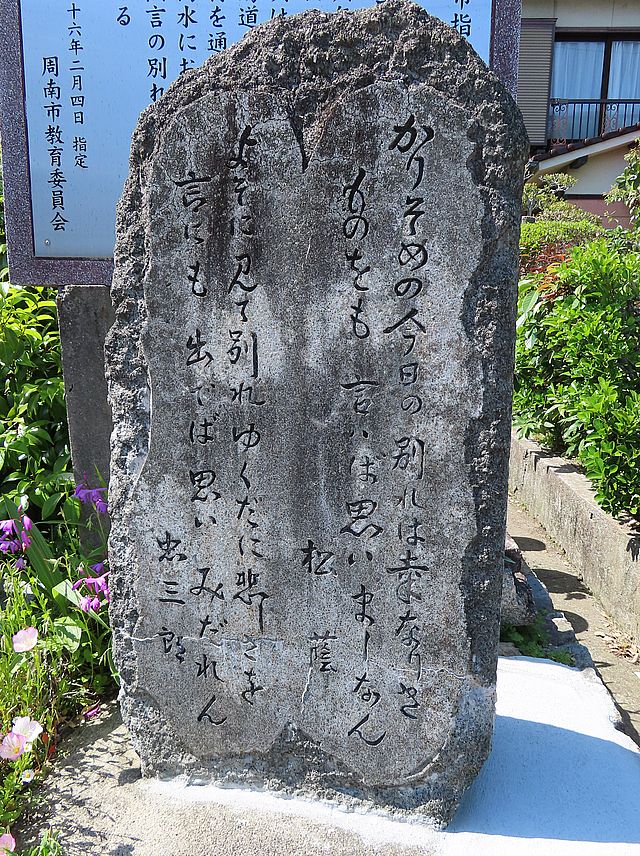 かりそめの今日の別れは幸なりき
ものをも言いば思いましなん
松蔭
よそに見て別れゆくだに悲しさを
言にも出でば思いみだれん
忠三郎
市指
道
を通
水にお
言の別れ
る
十六年二月四日 指定
周南市教育委員会